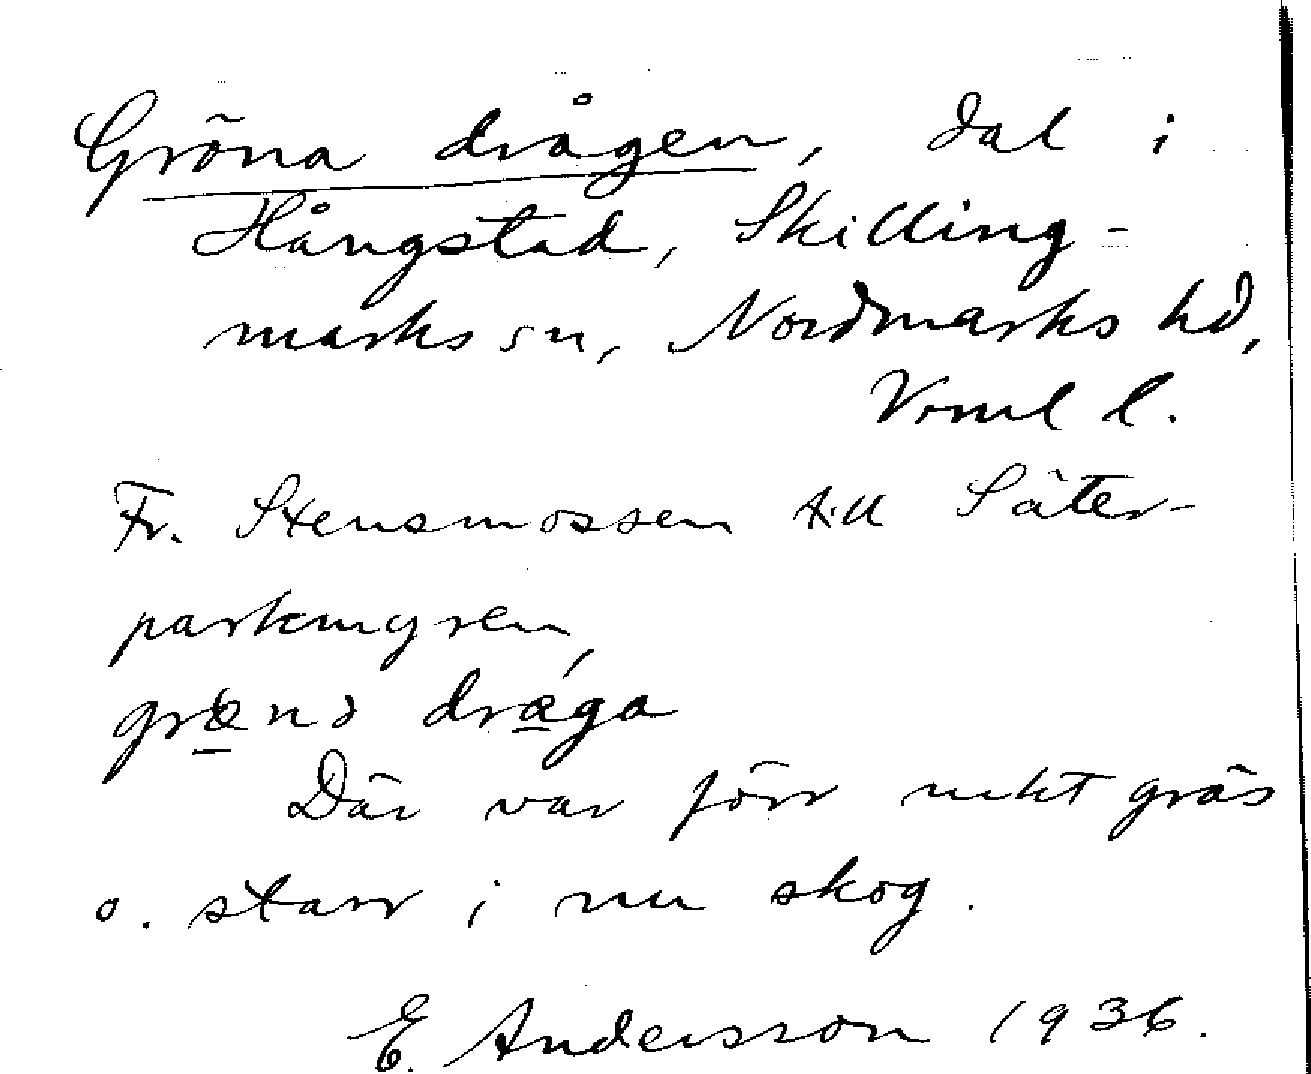 Gröna drågen, dal i
Hångstad, Skilling-
marks sn, Nordmarks hd,
Vrml l.
Fr. Stensmossen till Säter-
parkmyren,
då var
Där var förr mkt gräs
o. starr; nu skog.
E. Andersson 1936.